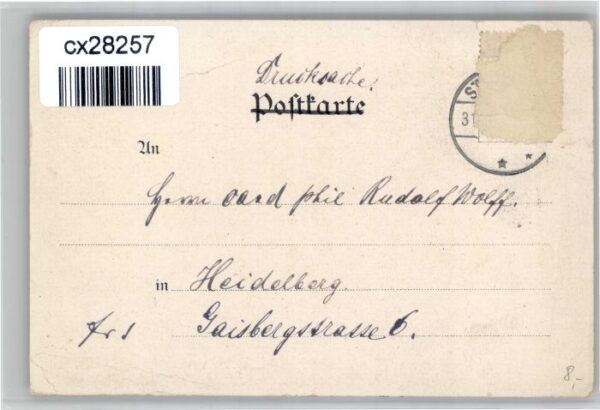 cx28257
Drucksache.
Postkarte
An
Herrn cand phil Rudolf Wolff.
in Heidelberg.
frs Gaisbergstrasse 6.
31
8,-